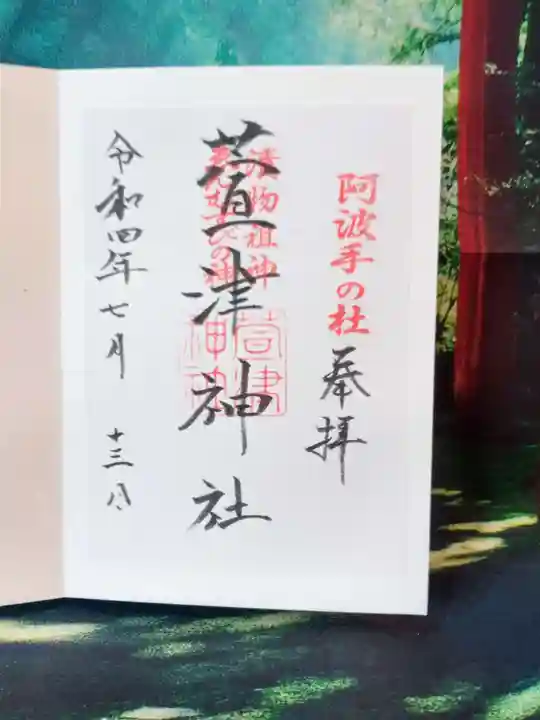 阿波手の杜
奉拝
漬物祖神
縁むすびの神
萱津神社
萱津
神社
令和四年七月 十三日